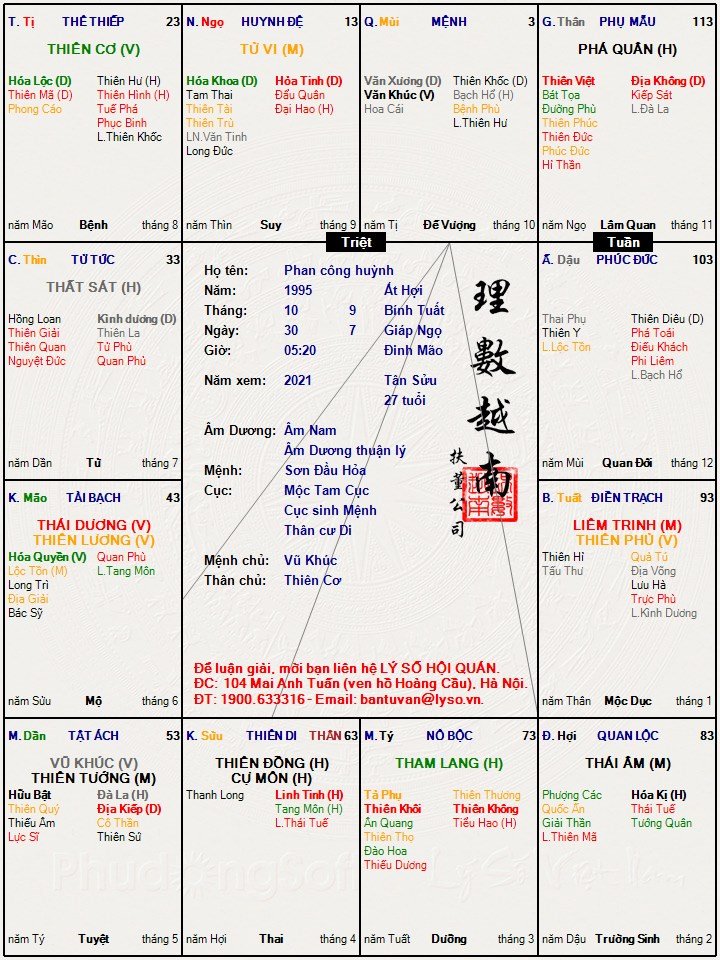 T. Tị THÊ THIẾP 23
THIÊN CƠ (V)
Hóa Lộc (D) Thiên Hư (H)
Thiên Mã (D) Thiên Hình (H)
Phong Cáo Tuế Phá
Phục Binh
L.Thiên Khốc
năm Mão Bệnh tháng 8
N. Ngọ HUYNH ĐỆ 13
TỬ VI (M)
Hóa Khoa (D) Hỏa Tinh (D)
Tam Thai Đẩu Quân
Thiên Tài Đại Hao (H)
Thiên Trù
LN.Văn Tinh
Long Đức
năm Thìn Suy tháng 9
Q. Mùi MỆNH 3
Văn Xương (D) Thiên Khốc (D)
Văn Khúc (V) Bạch Hổ (H)
Hoa Cái Bệnh Phù
L.Thiên Hư
năm Tị Đế Vượng tháng 10
G. Thân PHỤ MẪU 113
PHÁ QUÂN (H)
Thiên Việt Địa Không (D)
Bát Tọa Kiếp Sát
Đường Phù L.Đà La
Thiên Phúc
Thiên Đức
Phúc Đức
Hỉ Thần
năm Ngọ Lâm Quan tháng 11
Triệt
Tuần
C. Thìn TỬ TỨC 33
THẤT SÁT (H)
Hồng Loan Kình dương (D)
Thiên Giải Thiên La
Thiên Quan Tử Phù
Nguyệt Đức Quan Phủ
năm Dần Tử tháng 7
Họ tên: Phan công huỳnh
Năm: 1995 Ất Hợi
Tháng: 10 9 Bính Tuất
Ngày: 30 7 Giáp Ngọ
Giờ: 05:20 Đinh Mão
Năm xem: 2021 Tân Sửu
27 tuổi
Âm Dương: Âm Nam
Âm Dương thuận lý
Mệnh: Sơn Đầu Hỏa
Cục: Mộc Tam Cục
Cục sinh Mệnh
Thân cư Di
Mệnh chủ: Vũ Khúc
Thân chủ: Thiên Cơ
理數越南
扶董公司
Để luận giải, mời bạn liên hệ LÝ SỐ HỘI QUÁN.
ĐC: 104 Mai Anh Tuấn (ven hồ Hoàng Cầu), Hà Nội.
ĐT: 1900.633316 - Email: bantuvan@lyso.vn.
Ấ. Dậu PHÚC ĐỨC 103
Thai Phụ Thiên Diêu (D)
Thiên Y Phá Toái
L.Lộc Tồn Điếu Khách
Phi Liêm
L.Bạch Hổ
năm Mùi Quan Đới tháng 12
K. Mão TÀI BẠCH 43
THÁI DƯƠNG (V)
THIÊN LƯƠNG (V)
Hóa Quyền (V) Quan Phù
Lộc Tồn (M) L.Tang Môn
Long Trì
Địa Giải
Bác Sỹ
năm Sửu Mộ tháng 6
B. Tuất ĐIỀN TRẠCH 93
LIÊM TRINH (M)
THIÊN PHỦ (V)
Thiên Hỉ Quả Tú
Tấu Thư Địa Võng
Lưu Hà
Trực Phù
L.Kình Dương
năm Thân Mộc Dục tháng 1
M. Dần TẬT ÁCH 53
VŨ KHÚC (V)
THIÊN TƯỚNG (M)
Hữu Bật Đà La (H)
Thiên Quý Địa Kiếp (D)
Thiếu Âm Cô Thần
Lực Sĩ Thiên Sứ
năm Tý Tuyệt tháng 5
K. Sửu THIÊN DI THÂN 63
THIÊN ĐỒNG (H)
CỰ MÔN (H)
Thanh Long Linh Tinh (H)
Tang Môn (H)
L.Thái Tuế
năm Hợi Thai tháng 4
M. Tý NÔ BỘC 73
THAM LANG (H)
Tả Phụ Thiên Thương
Thiên Khôi Thiên Không
Ân Quang Tiểu Hao (H)
Thiên Thọ
Đào Hoa
Thiếu Dương
năm Tuất Dưỡng tháng 3
Đ. Hợi QUAN LỘC 83
THÁI ÂM (M)
Phượng Các Hóa Kị (H)
Quốc Ấn Thái Tuế
Giải Thần Tướng Quân
L.Thiên Mã
năm Dậu Trường Sinh tháng 2
Phudongsoft Lý Số Việt Nam